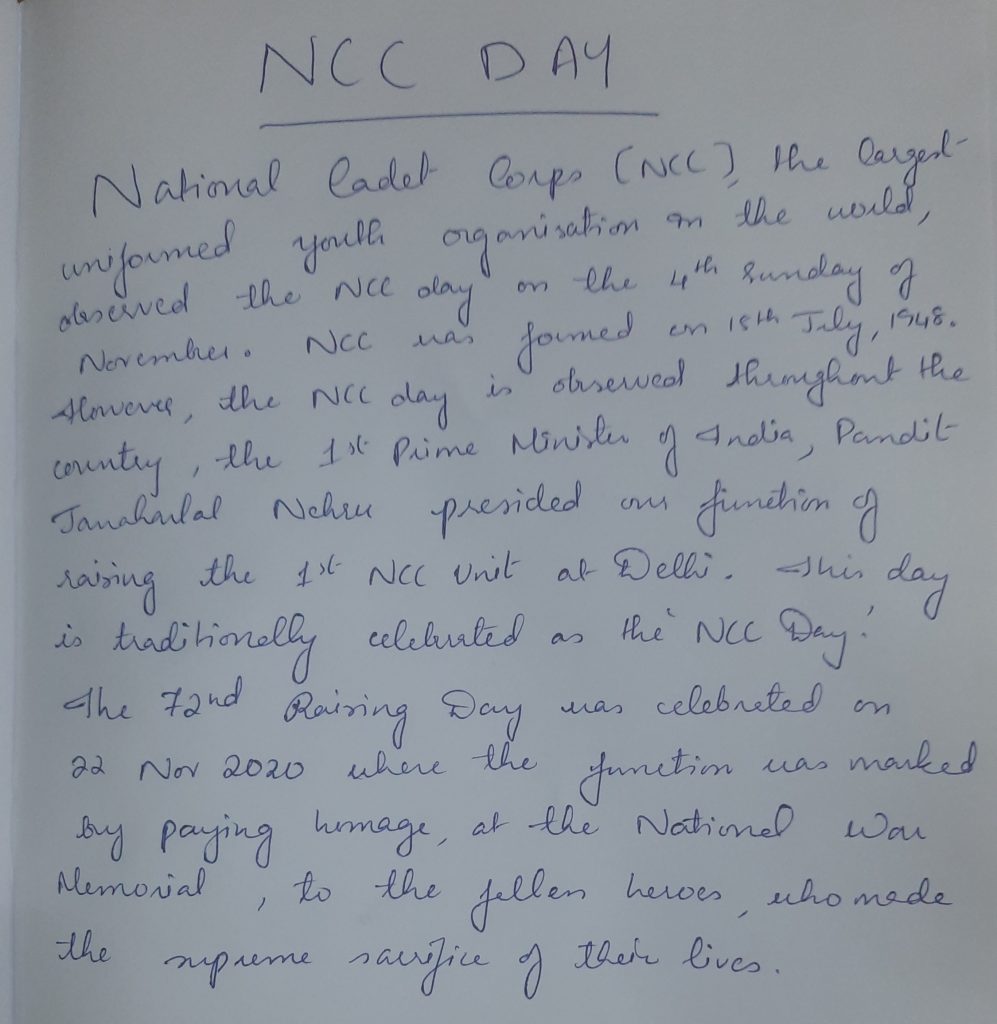 NCC DAY
National Cadet Corps (NCC), the largest
uniformed youth organisation in the world,
observed the NCC day on the 4th Sunday of
November. NCC was formed on 15th July, 1948.
However, the NCC day is observed throughout the
country, the 1st Prime Minister of India, Pandit
Jawaharlal Nehru presided our function of
raising the 1st NCC Unit at Delhi. This day
is traditionally celebrated as the 'NCC Day'.
The 72nd Raising Day was celebrated on
22 Nov 2020 where the function was marked
by paying homage, at the National War
Memorial, to the fallen heroes, who made
the supreme sacrifice of their lives.